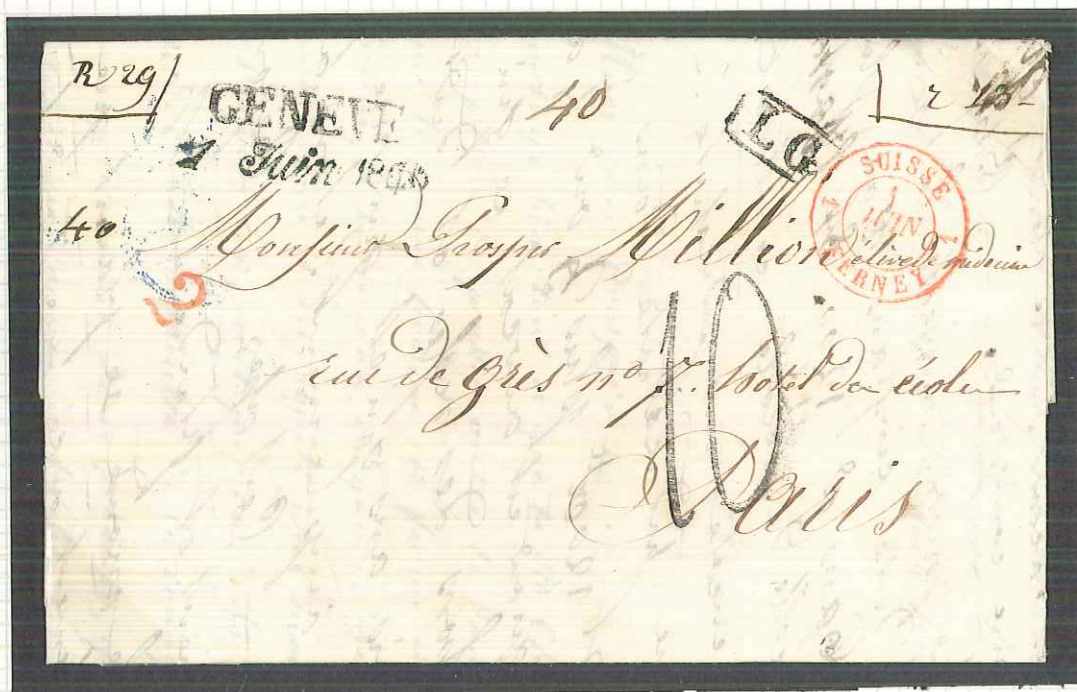 R 29
40
r 13-
GENEVE
1 Juin 1846
LG
SUISSE
1
JUIN
1 1
FERNEY
40
2
Monsieur Prosper Million élève de médecine
rue de Grès nº 7. hotel des écoles
10
Paris